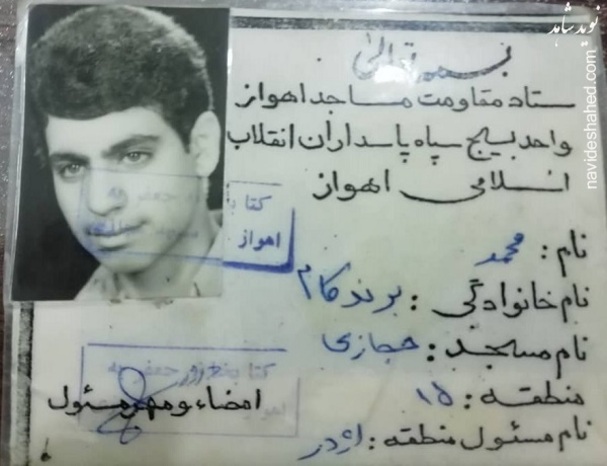 نوید شاهد
navideshahed.com
بسمه تعالی
ستاد مقاومت مساجد اهواز
واحد بسیج سپاه پاسداران انقلاب
اسلامی اهواز
کتا
اهواز
نام: محمد
نام خانوادگی: برندکام
نام مسجد: حجازی
منطقه: ۱۵
نام مسئول منطقه: اژدر
امضاء و مهر مسئول